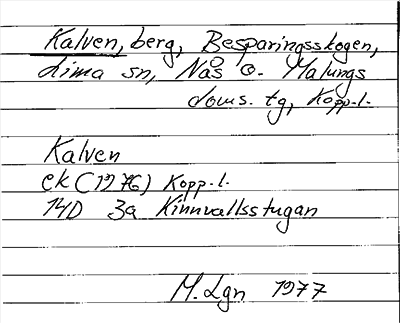 Kalven, berg, Besparingsskogen,
Lima sn, Nås o. Malungs
doms. tg, Kopp. l.
Kalven
ek (1976) Kopp. l.
14D 3a Kinnvallsstugan
M. Lgn 1977